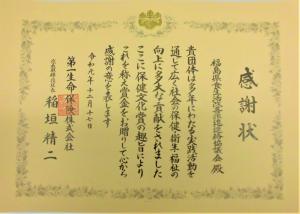 感謝状
福島県食生活改善推進連絡協議会 殿
貴団体は多年にわたる実践活動を
通して広く社会の保健・衛生・福祉の
向上に多大な貢献をされました
ここに保健文化賞の趣旨により
これを称え賞金をお贈りして心から
感謝の意を表します
令和元年十二月十七日
第一生命保険株式会社
代表取締役社長 稲垣精二